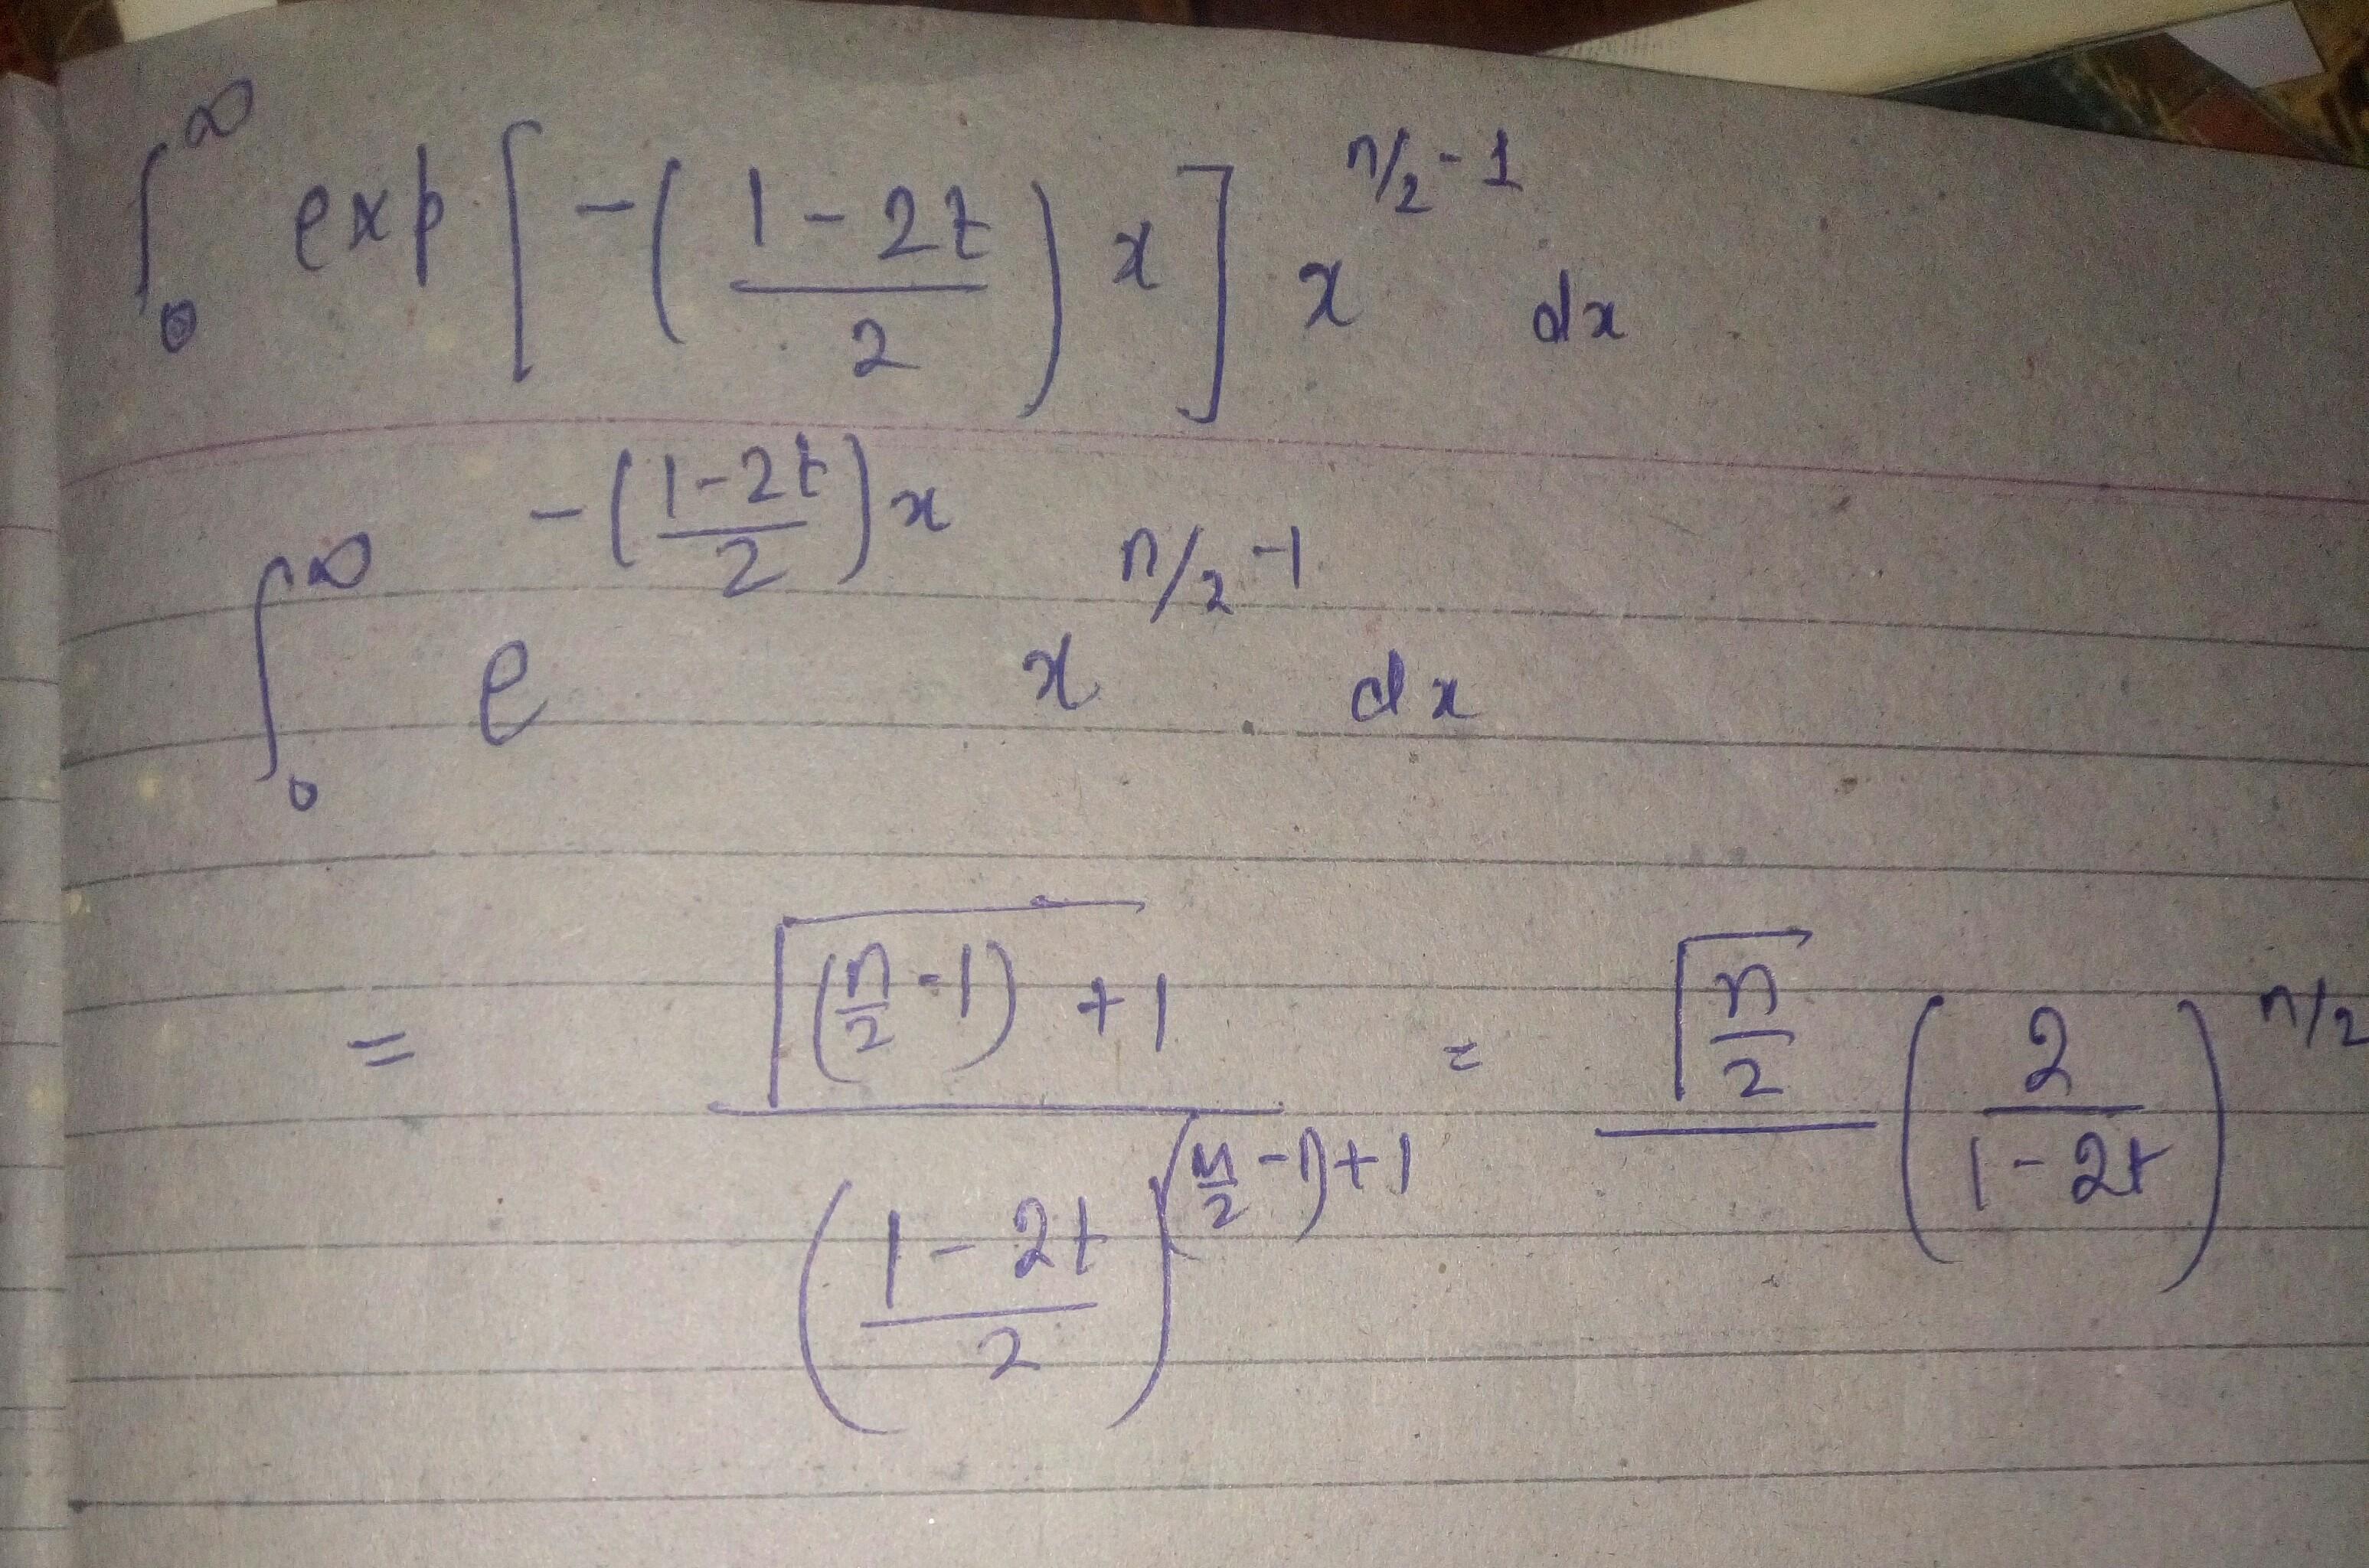 ∫₀^∞ exp[-((1-2t)/2)x] x^(n/2-1) dx
∫₀^∞ e^(-((1-2t)/2)x) x^(n/2-1) dx
= Γ((n/2-1)+1) / ((1-2t)/2)^((n/2-1)+1) = Γ(n/2) (2/(1-2t))^(n/2)